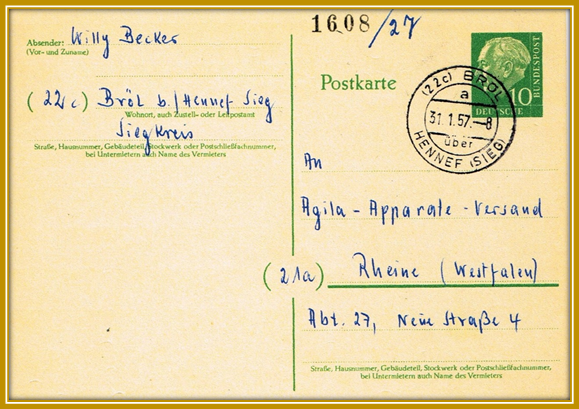 1608/27
Absender: Willy Becker
(Vor- und Zuname)
(22c) Bröl b./Hennef Sieg
Wohnort, auch Zustell- oder Leitpostamt
Siegkreis
Straße, Hausnummer, Gebäudeteil, Stockwerk oder Postschließfachnummer,
bei Untermietern auch Name des Vermieters
Postkarte
10
DEUTSCHE
BUNDESPOST
(22c) BRÖL
a
31.1.57.-8
über
HENNEF (SIEG)
An
Agila-Apparate-Versand
(21a) Rheine (Westfalen)
Abt. 27, Neue Straße 4
Straße, Hausnummer, Gebäudeteil, Stockwerk oder Postschließfachnummer,
bei Untermietern auch Name des Vermieters